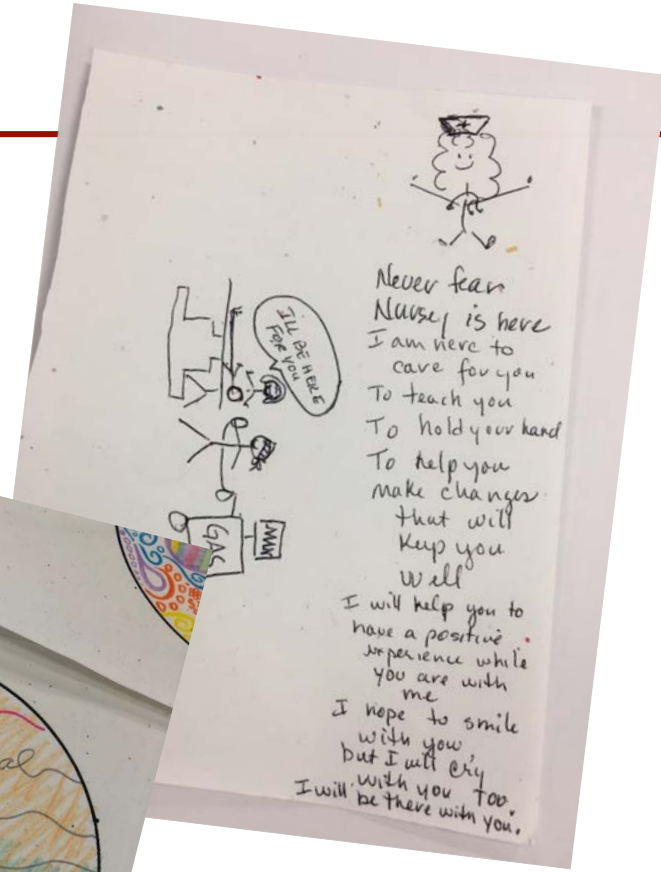 Never fear
Nurse, is here
I am here to
care for you
To teach you
To hold your hand
To help you
make changes
that will
Keep you
Well
I will help you to
have a positive
experience while
you are with
me
I hope to smile
with you
but I will cry
with you too.
I will be there with you.
I'LL BE HERE
FOR YOU
GAS